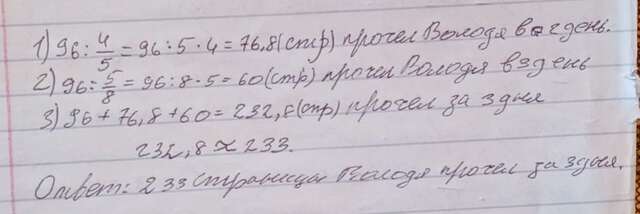 1) 96 : 4/5 = 96 : 5 · 4 = 76,8 (стр) прочел Володя во 2 день.
2) 96 : 5/8 = 96 : 8 · 5 = 60 (стр) прочел Володя в 3 день
3) 96 + 76,8 + 60 = 232,8 (стр) прочел за 3 дня
232,8 ≈ 233.
Ответ: 233 страницы Володя прочел за 3 дня.